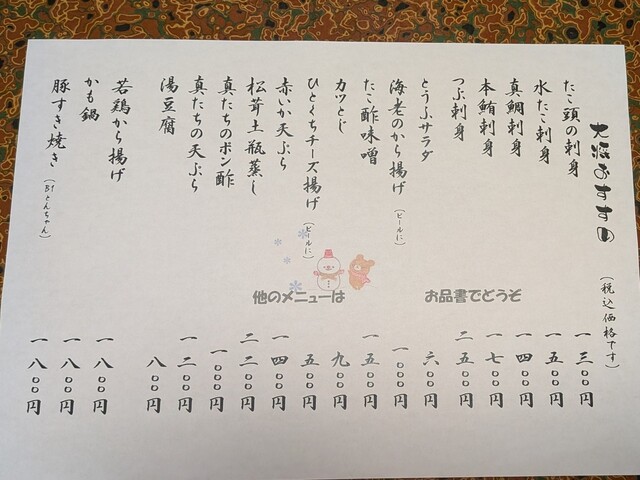 大将おすすめ
(税込価格です)
たこ頭の刺身 一三〇〇円
水たこ刺身 一五〇〇円
真鯛刺身 一四〇〇円
本鮪刺身 一七〇〇円
つぶ刺身 二五〇〇円
とうふサラダ 六〇〇円
海老のから揚げ(ビールに) 一〇〇〇円
たこ酢味噌 一五〇〇円
カツとじ 九〇〇円
ひとくちチーズ揚げ(ビールに) 五〇〇円
赤いか天ぷら 一四〇〇円
松茸土瓶蒸し 二二〇〇円
真たちのポン酢 一〇〇〇円
真たちの天ぷら 一二〇〇円
湯豆腐 八〇〇円
若鶏から揚げ 一八〇〇円
かも鍋 一八〇〇円
豚すき焼き(B1とんちゃん) 一八〇〇円
他のメニューは お品書でどうぞ